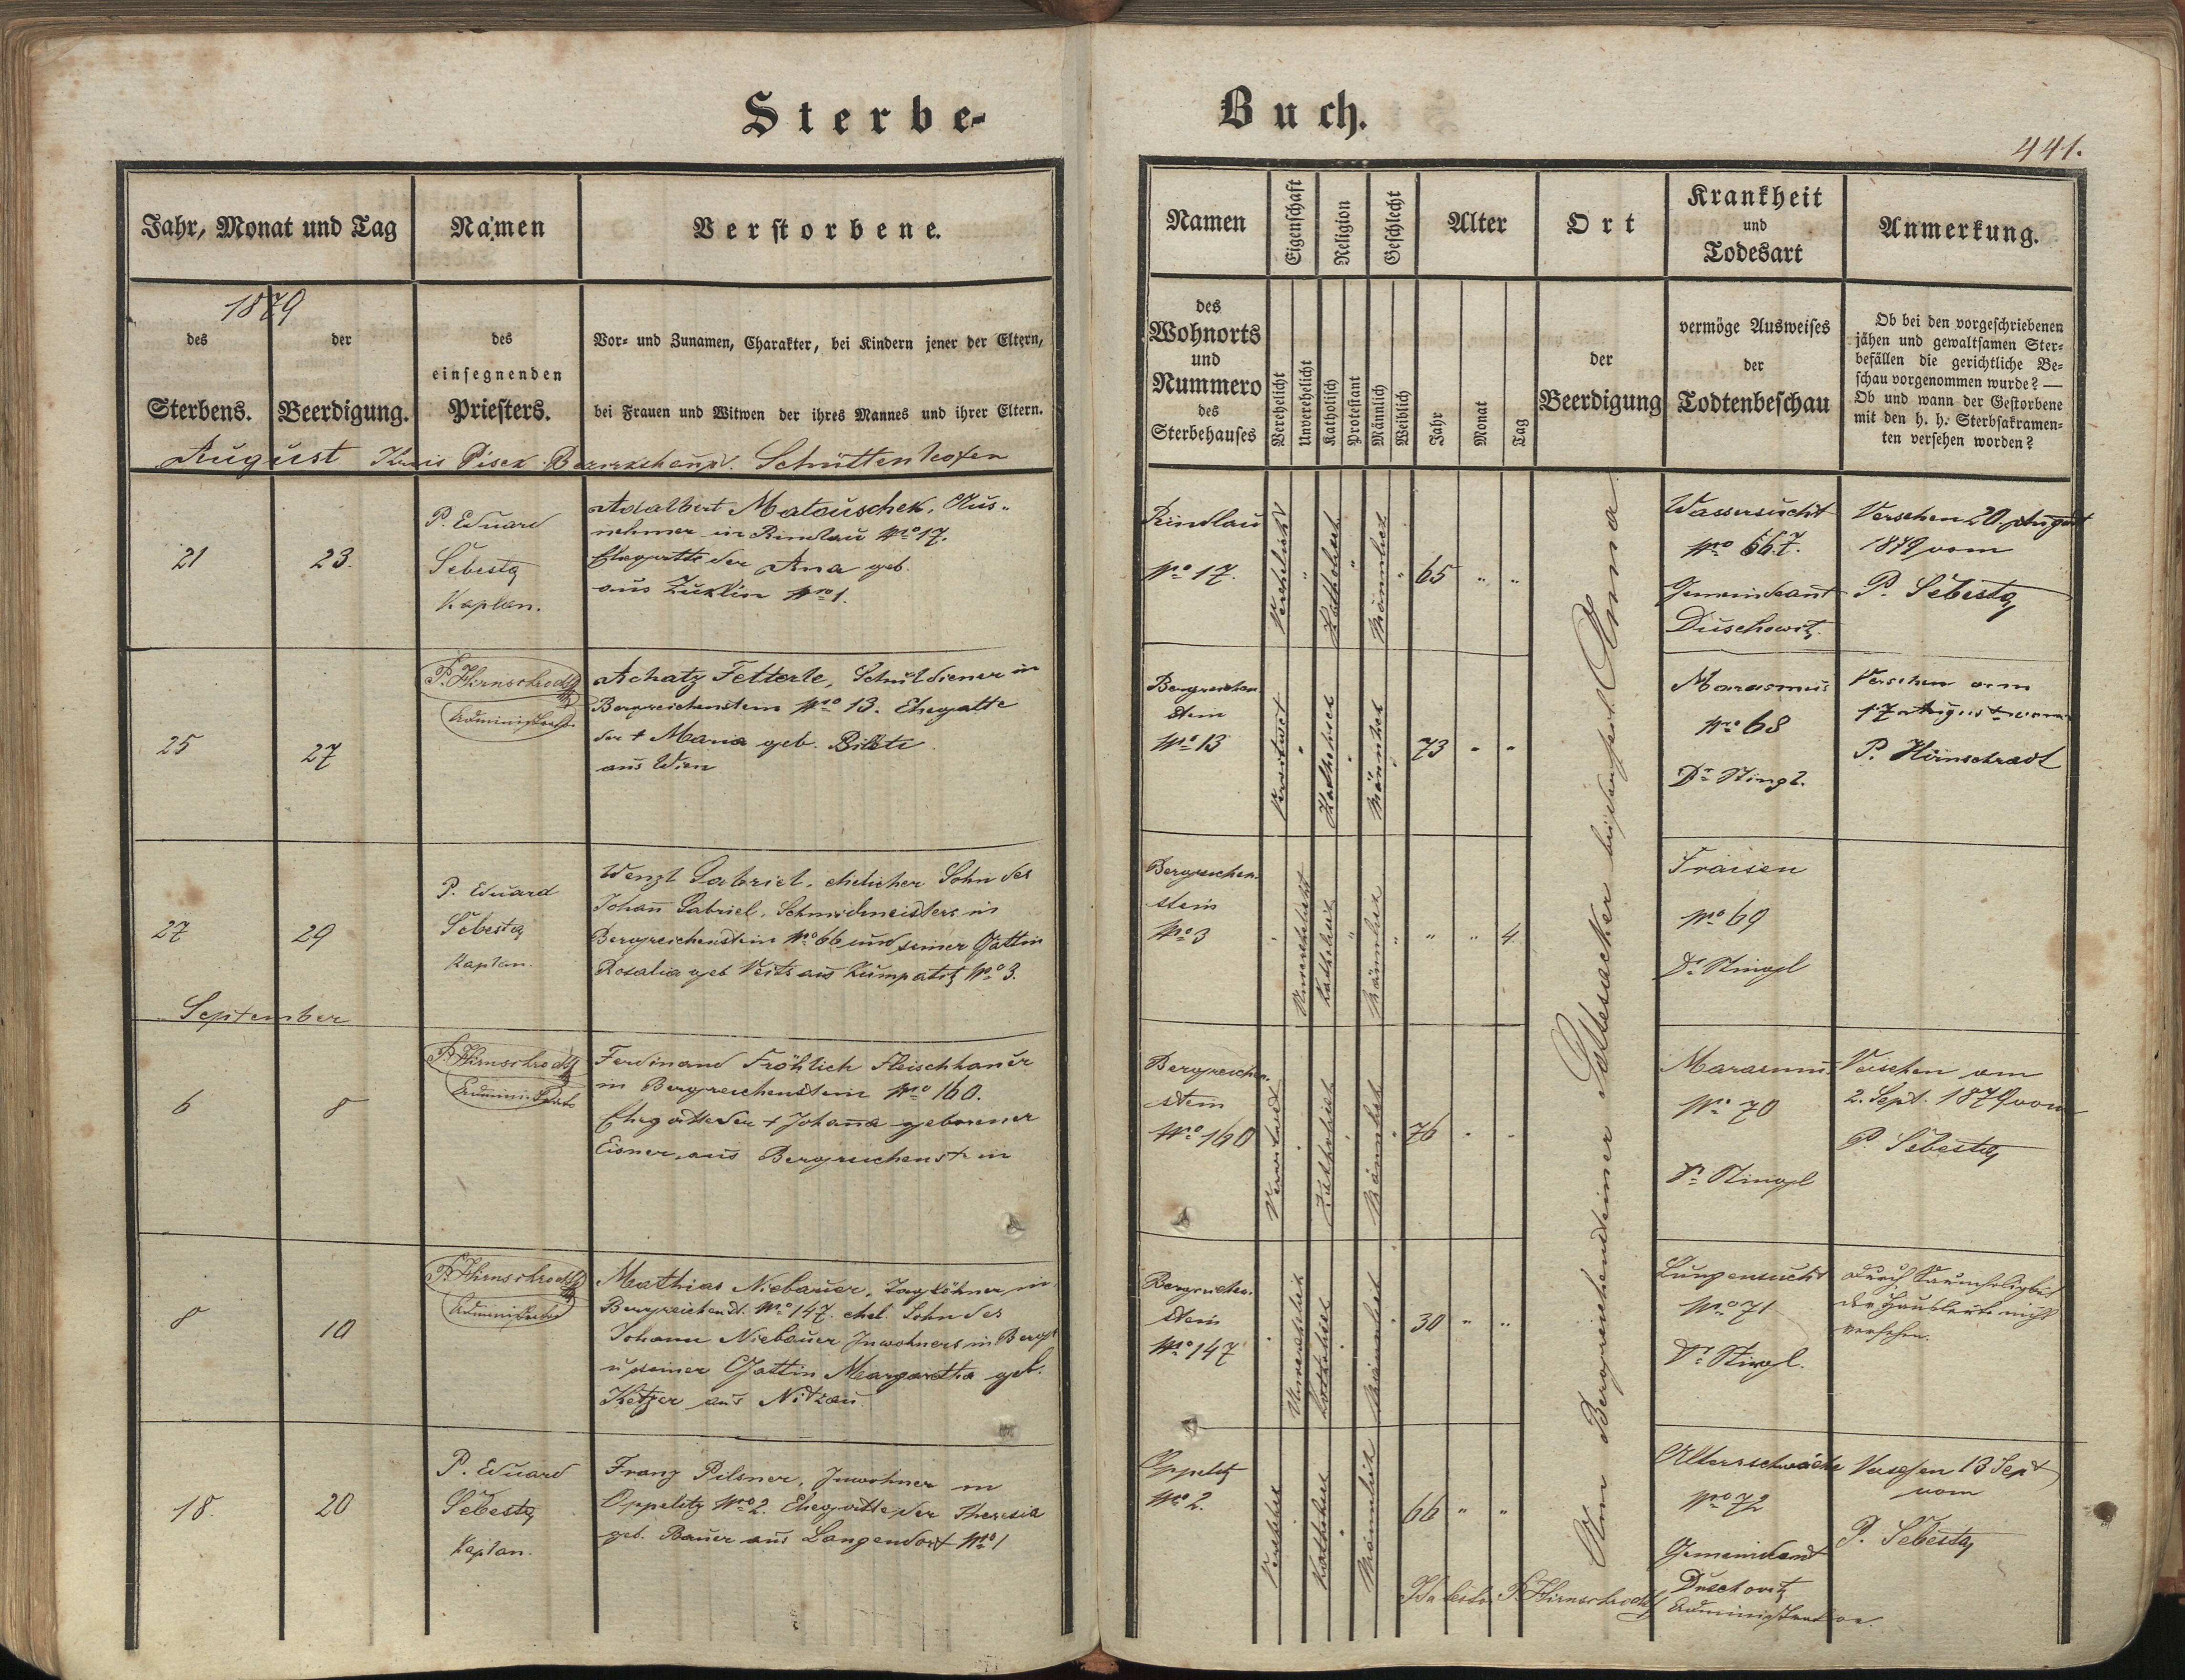 Sterbe-
Buch.
441.
Jahr, Monat und Tag
Namen
Verstorbene.
1879
des
Sterbens.
der
Beerdigung.
des
einsegnenden
Priesters.
Vor- und Zunamen, Charakter, bei Kindern jener der Eltern,
bei Frauen und Witwen der ihres Mannes und ihrer Eltern.
August Kreis Pisek Bezirkshaupt. Schüttenhofen
21
23.
P. Eduard
Šebesta
Kaplan.
Adalbert Matouschek, Aus-
nehmer in Rindlau Nro 17.
Ehegatte der Ana geb.
aus Zuklin Nro 1.
25
27
P. Hirnschrodt
Administrator
Achatz Fetterle, Schuldiener in
Bergreichenstein Nro 13. Ehegatte
der † Maria geb.
aus Wien
27
29
P. Eduard
Šebesta
Kaplan.
Wenzl Gabriel, ehelicher Sohn des
Johann Gabriel, Schmidmeisters in
Bergreichenstein No 66 und seiner Gattin
Rosalia geb Veits aus Kumpatitz No 3.
September
6
8
P. Hirnschrodt
Administrator
Ferdinand Fröhlich Fleischhauer
in Bergreichenstein Nro 160.
Ehegatte der † Johanna geborener
Eisner, aus Bergreichenstein
8
10
P. Hirnschrodt
Administrator
Mathias Niebauer, Taglöhner, in
Bergreichenst. No 147. ehel. Sohn des
Johann Niebauer Inwohners in Bergr
u seiner Gattin Margaretha geb.
Ketzer aus Nitzau.
18.
20
P. Eduard
Šebesta
Kaplan.
Franz Pilsner, Inwohner in
Oppelitz Nro 2. Ehegatte der Theresia
geb. Bauer aus Langendorf Nro 1
Namen
Eigenschaft
Religion
Geschlecht
Alter
Ort
Krankheit
und
Todesart
Anmerkung.
des
Wohnorts
und
Nummero
des
Sterbehauses
Verehelicht
Unverehelicht
Katholisch
Protestant
Männlich
Weiblich
Jahr
Monat
Tag
der
Beerdigung
vermöge Ausweises
der
Todtenbeschau
Ob bei den vorgeschriebenen
jähen und gewaltsamen Ster-
befällen die gerichtliche Be-
schau vorgenommen wurde? —
Ob und wann der Gestorbene
mit den h. h. Sterbsakramen-
ten versehen worden?
Rindlau
No 17.
Verehelicht " Katholisch " Männlich " 65 " "
Wassersucht
Nro 667.
Gemeindeamt
Duschowitz.
Versehen 20. August
1879 vom
P. Šebesta
Bergreichen
stein
No 13
Verwitwet " Katholisch " Männlich " 73 " "
Marasmus
Nro 68
Dr Stingl.
Versehen am
17 August vom
P. Hirnschrodt
Bergreichen-
stein
No 3
" Unverehelicht Katholisch " Männlich " " " 4
Fraisen
No 69
Dr Stingl
Bergreichen-
stein
No 160
Verwitwet " Katholisch " Männlich " 76 " "
Marasmus
No 70
Dr Stingl
Versehen am
2. Sept. 1879 vom
P. Šebesta
Bergreichen-
stein
No 147
" Unverehelicht Katholisch " Männlich " 30 " "
Lungensucht
No 71
Dr Stingl.
Durch Saumseligkeit
der Hausleute nicht
versehen.
Oppelitz
No 2.
Verehelicht Katholisch " Männlich 66 " "
Altersschwäche
No 72
Gemeindeamt
Duschowitz
Versehen 13 Sept
vom
P. Šebesta
Am Bergreichensteiner Gottesacker bei der Anna
P. Hirnschrodt
Administrator.